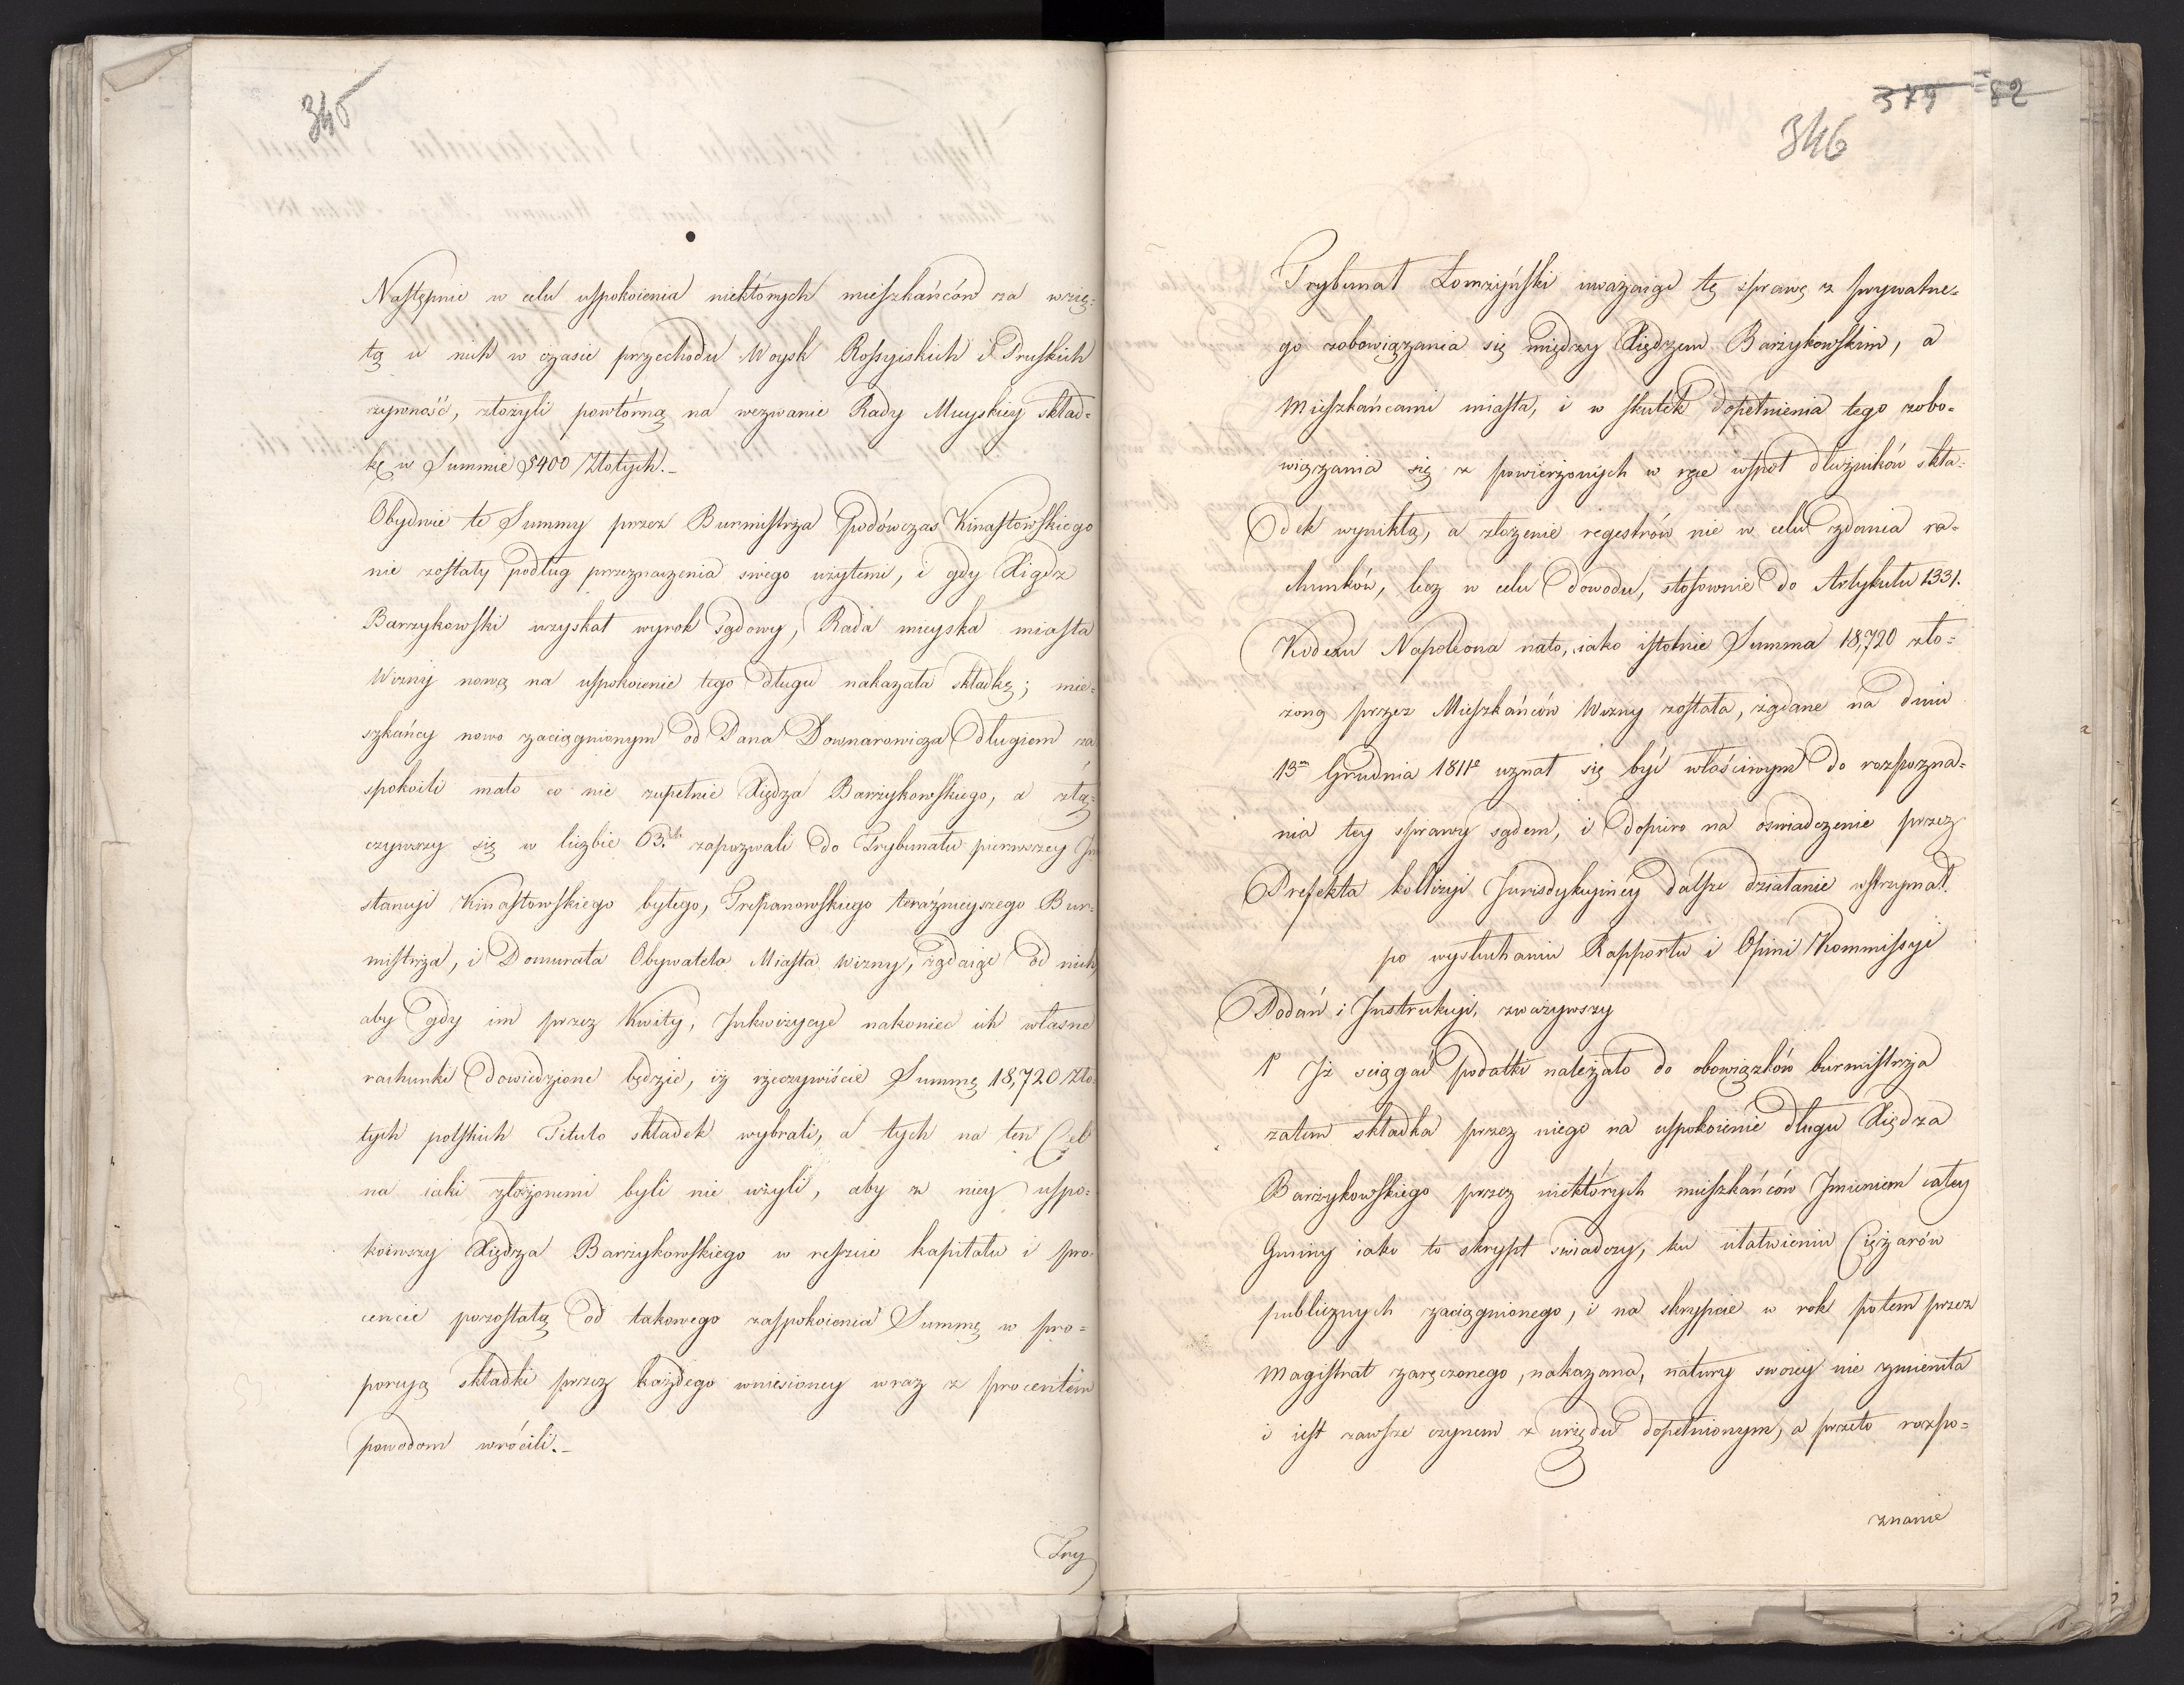 345
Następnie w celu uspokoienia niektórych mieszkańców za wzię-
tą u nich w czasie przechodu Woysk Rossyiskich i Pruskich
żywność, złożyli powtórną na wezwanie Rady Mieyskiey skład-
kę w Summie 5400 Złotych.-
Obydwie te Summy przez Burmistrza podówczas Kinastowskiego
nie zostały podług przeznaczenia swego użytemi, i gdy Xiądz
Barzykowski uzyskał wyrok sądowy, Rada mieyska miasta
Wizny nową na uspokoienie tego długu nakazała składkę; mie-
szkańcy nowo zaciągnionym od Pana Downarowicza długiem za
spokoili mało co nie zupełnie Xiędza Barzykowskiego, a złą-
czywszy się w liczbie 63. zapozwali do Trybunału pierwszey In
stancyi Kinastowskiego byłego, Trepanowskiego teraźnieyszego Bur-
mistrza, i Domurata Obywatela Miasta Wizny, żądaiąc od nich
aby gdy im przez Kwity, Inkwizycye nakoniec ich własne
rachunki dowiedzione będzie, iż rzeczywiście Summę 18,720 Zło-
tych polskich Titulo składek wybrali, a tych na ten Cel
na iaki złożonemi byli nie użyli, aby z niey uspo-
koiwszy Xiędza Barzykowskiego w reszcie kapitału i pro-
cencie pozostałą od takowego zaspokoienia Summę w pro-
porcyą składki przez każdego wniesioney wraz z procentem
powodom wrócili.-
Try
379 82
346
Trybunał Łomżyński uważaiąc tę sprawę z prywatne-
go zobowiązania się między Xiędzem Barzykowskim, a
Mieszkańcami miasta, i w skutek dopełnienia tego zobo-
wiązania się z powierzonych w ręce współ dłużników skła-
dek wynikłą, a złożenie regestrów nie w celu zdania ra-
chunków, lecz w celu dowodu, stosownie do Artykułu 1331.
Kodexu Napoleona na to, iako istotnie Summa 18,720 zło-
żoną przez Mieszkańców Wizny została, żądane na dniu
13m Grudnia 1811r uznał się być właściwym do rozpozna-
nia tey sprawy sądem, i dopiero na oświadczenie przez
Prefekta kollizyi Jurisdykcyiney dalsze działanie wstrzymał.
po wysłuchaniu Rapportu i Opinii Kommissyi
Podań i Instrukcyi, zważywszy
1o Iż sciągać podatki należało do obowiązków burmistrza
zatem składka przez niego na uspokoienie długu Xiędza
Barzykowskiego przez niektórych mieszkańców Imieniem całey
Gminy iako to skrypt świadczy, ku ułatwieniu Ciężarów
publicznych zaciągnionego, i na skrypcie w rok potem przez
Magistrat zaręczonego, nakazana, natury swoiey nie zmieniła
i iest zawsze czynem z urzędu dopełnionym, a przeto rozpo-
znanie